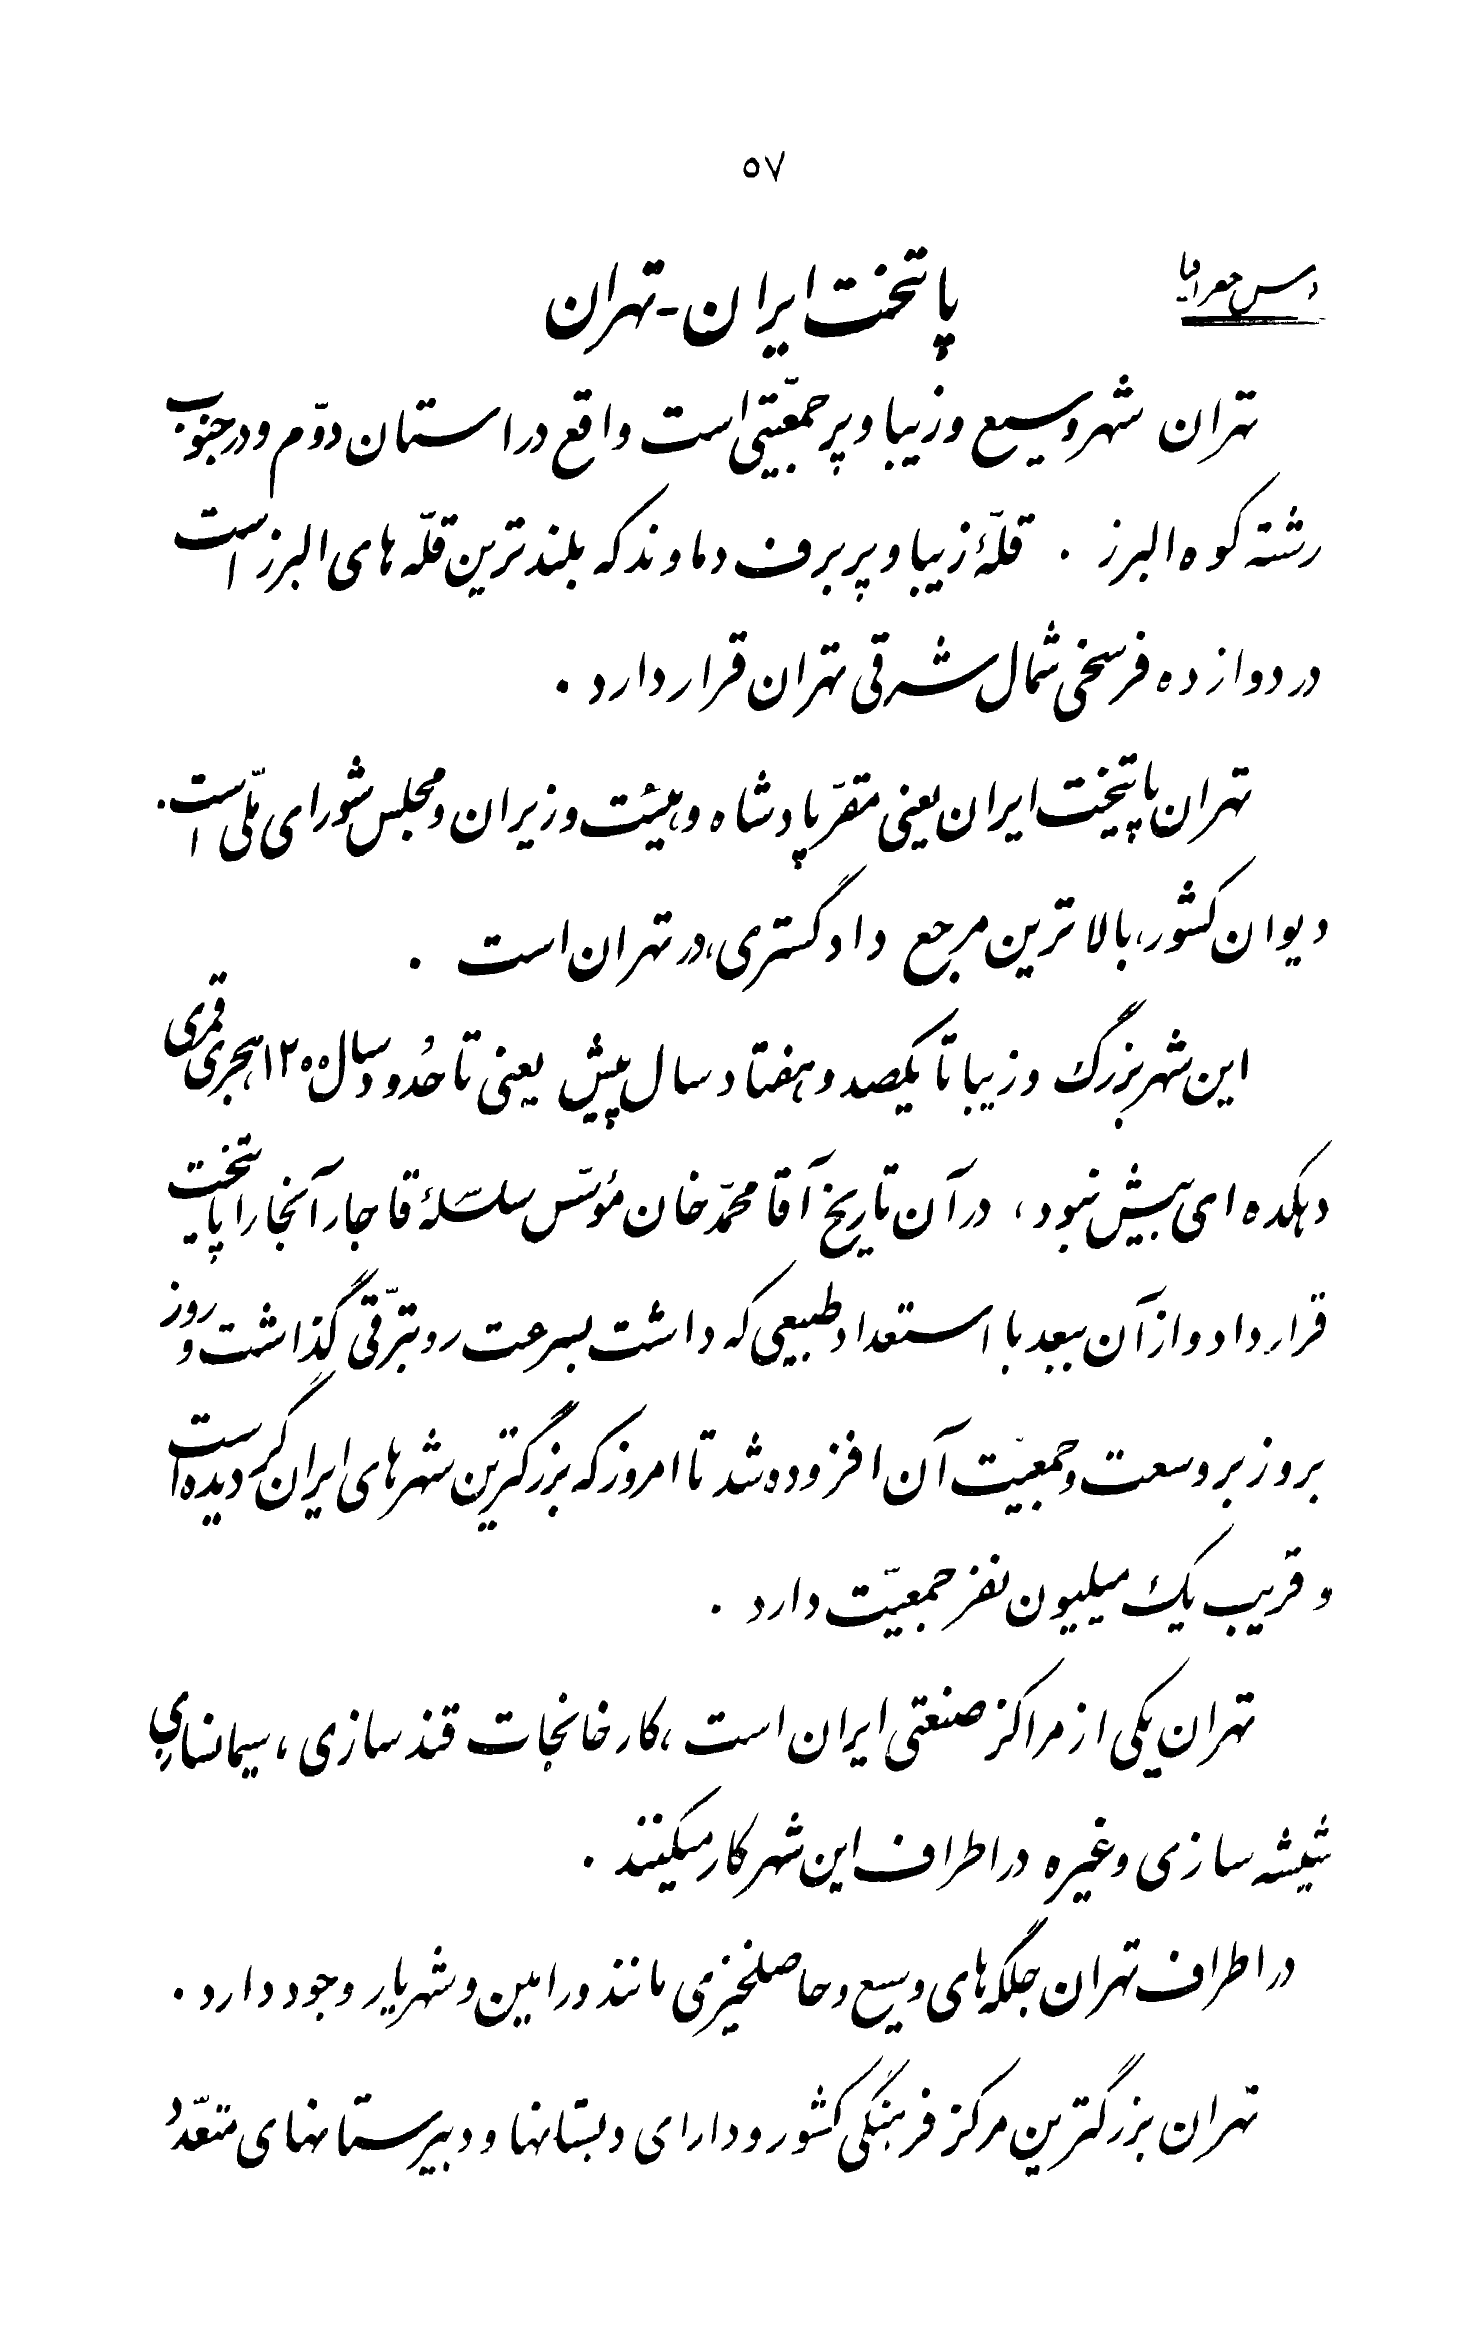 ۵۷
درس جغرافیا
پاتخت ایران - تهران
تهران شهر وسیع و زیبا و پر جمعّیتی است واقع در استان دوّم و در جنوب
رشته کوه البرز . قلّهٔ زیبا و پر برف دماوند که بلند ترین قلّه های البرز است
در دوازده فرسخی شمال شرقی تهران قرار دارد .
تهران پاتیخت ایران یعنی مقرّ پادشاه و هیئت وزیران و مجلس شورای ملّی است .
دیوان کشور، بالا ترین مرجع دادگستری، در تهران است .
این شهر بزرگ و زیبا تا یکصد و هفتاد سال پیش یعنی تا حُدود سال ۱۲۰۰ هجری قمری
دهکده ای بیش نبود ، در آن تاریخ آقا محمّد خان مؤسّس سلسلهٔ قاجار آنجا را پایتخت
قرار داد و از آن ببعد با استعداد طبیعی که داشت بسرعت رو بترّقی گذاشت و روز
بروز بر وسعت و جمعیّت آن افزوده شد تا امروز که بزرگترین شهر های ایران گردیده است
و قریب یک میلیون نفز جمعیّت دارد .
تهران یکی از مراکز صنعتی ایران است ، کارخانجات قند سازی ، سیمانسازی
شیشه سازی و غیره در اطراف این شهر کار میکنند .
در اطراف تهران جلگه های وسیع و حاصلخیزی مانند ورامین و شهریار وجود دارد .
تهران بزرگترین مرکز فرهنگی کشور و دارای دبستانها و دبیرستانهای متعّدد